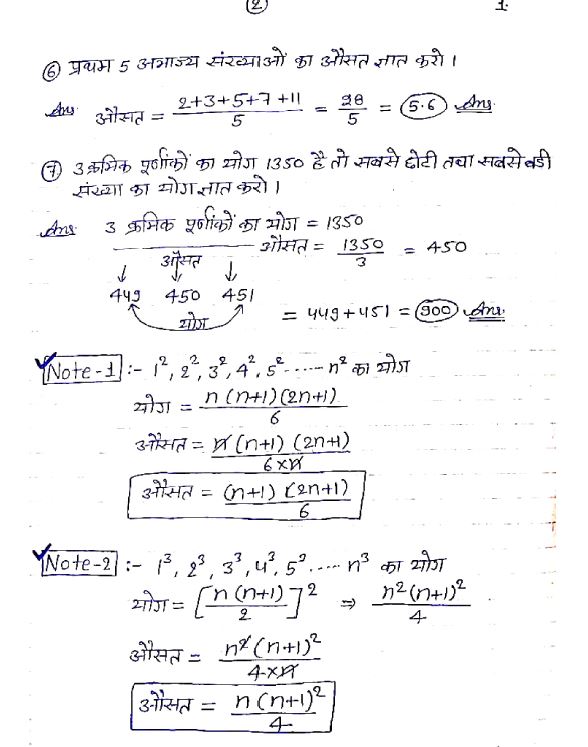 (2) 1.
⑥ प्रथम 5 अभाज्य संख्याओं का औसत ज्ञात करो।
Ans औसत = (2+3+5+7+11)/5 = 28/5 = 5.6 Ans
⑦ 3 क्रमिक पूर्णांकों का योग 1350 है तो सबसे छोटी तथा सबसे बडी
संख्या का योग ज्ञात करो।
Ans 3 क्रमिक पूर्णांकों का योग = 1350
औसत = 1350/3 = 450
औसत
↓ ↓ ↓
449 450 451
योग = 449+451 = 900 Ans.
✓ Note-1 :- 1², 2², 3², 4², 5² ----- n² का योग
योग = n(n+1)(2n+1)/6
औसत = n(n+1)(2n+1)/6×n
औसत = (n+1)(2n+1)/6
✓ Note-2 :- 1³, 2³, 3³, 4³, 5³ ---- n³ का योग
योग = [n(n+1)/2]² ⇒ n²(n+1)²/4
औसत = n²(n+1)²/4×n
औसत = n(n+1)²/4